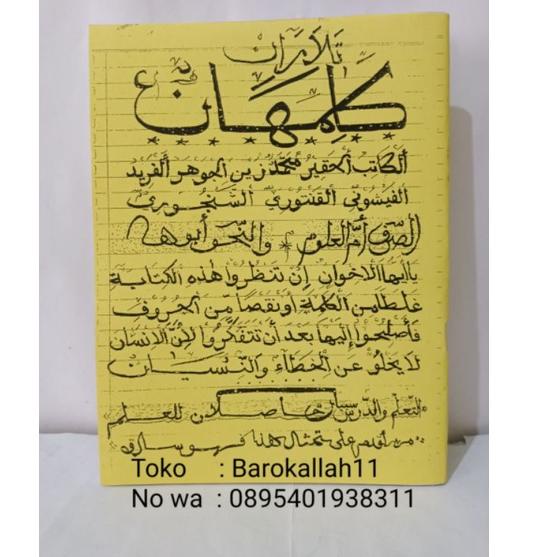 تلاران
كلمهان
الكاتب الحقير محمد زين الجوهر الفريد
الصرف أم العلوم * والنحو أبوها
ياأيها الاخوان إن تنظروا هذه الكتابة
غلطا من الكلمة أو نقصا من الحروف
فأصلحوا إليها بعد أن تتفكروا لأن الانسان
لا يخلو عن الخطاء والنسيان
التعلم والدرس سببان حاصلان للعلم
Toko : Barokallah11
No wa : 0895401938311